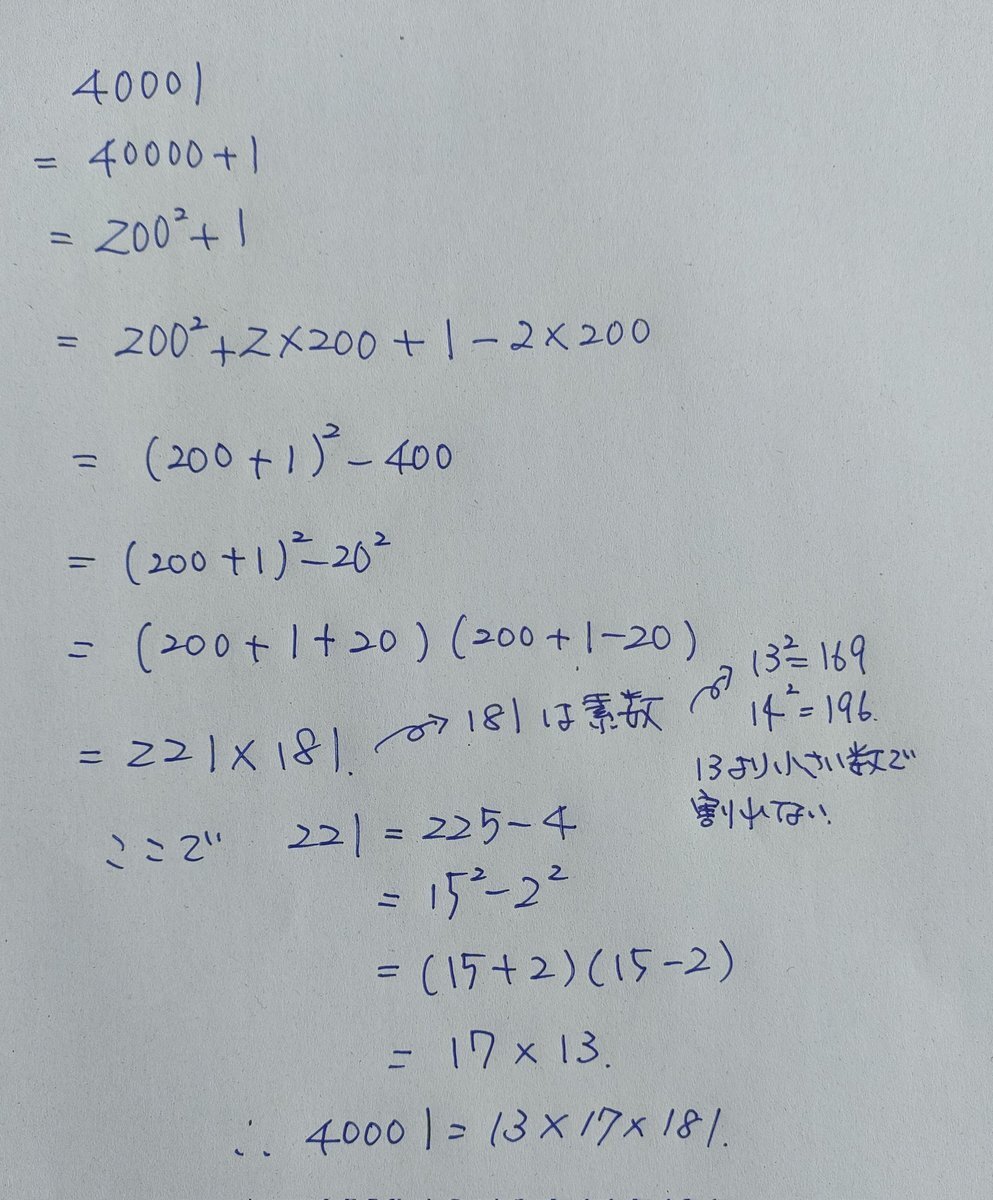 40001
= 40000+1
= 200²+1
= 200²+2×200+1-2×200
= (200+1)²-400
= (200+1)²-20²
= (200+1+20)(200+1-20)
= 221×181. → 181は素数 → 13²=169
14²=196.
13より小さい数で
割れない.
ここで 221 = 225-4
= 15²-2²
= (15+2)(15-2)
= 17×13.
∴ 40001=13×17×181.